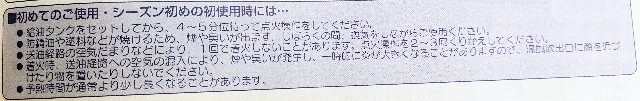 ■初めてのご使用・シーズン初めの初使用時には…
●給油タンクをセットしてから、4～5分位待って点火操作をしてください。
●防錆油や塗料などが焼けるため、煙や臭いが出ます。しばらくの間、換気をしながらご使用ください。
●送油経路の空気だまりなどにより、1回で着火しないことがあります。点火操作を2～3回くりかえしてください。
●着火時、送油経路への空気の混入により、煙や臭いが発生し、一時的に炎が大きくなることがありますので、温風吹出口に顔を近づ
けたり物を置いたりしないでください。
●予熱時間が通常より少し長くなることがあります。